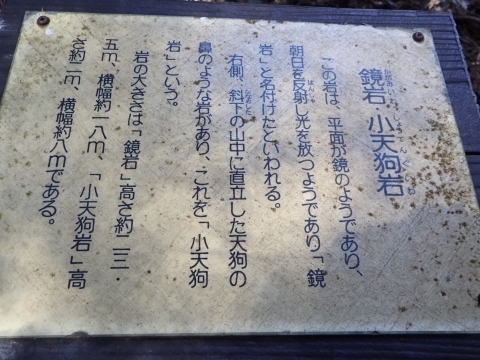 鏡岩 小天狗岩
この岩は、平面が鏡のようであり、
朝日を反射し光を放つようであり「鏡
岩」と名付けたといわれる。
右側、斜下の山中に直立した天狗の
鼻のような石があり、これを「小天狗
岩」という。
岩の大きさは「鏡岩」高さ約二三・
五m、横幅約一八m、「小天狗岩」高
さ約二m、横幅約八mである。